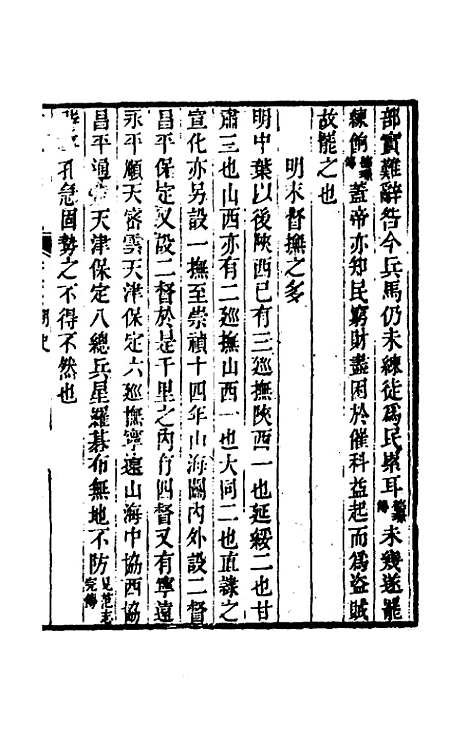 部實難辭咎今兵馬仍未練徒為民累耳未幾遂罷
練餉蓋帝亦知民窮財盡困於催科益起而為盜賊
故罷之也
明末督撫之多
明中葉以後陝西已有三廵撫陝西一也延綏二也甘
肅三也山西亦有二廵撫山西一也大同二也直隸之
宣化亦另設一撫至崇禎十四年山海關內外設二督
昌平保定又設二督於是千里之內有四督又有寧遠
永平順天密雲天津保定六廵撫寧遠山海中協西協
昌平通天津保定八總兵星羅碁布無地不防見范志完傳
孔急固勢之不得不然也